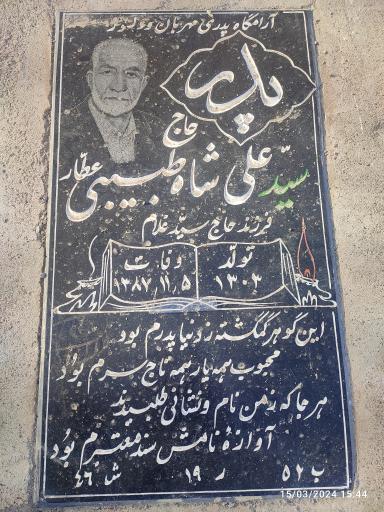 آرامگاه پدری مهربان و دلسوز
پدر
حاج
سیّد علی شاه طبیبی عطّار
فرزند حاج سیّد غلام
تولد وفات
۱۳۰۳ ۱۳۸۷،۱۱،۵
این گوهر گمگشته ز دنیا پدرم بود
محبوب همه یار همه تاج سرم بود
هر جا که ز من نام و نشانی طلبیدند
آوازهٔ نامش سند معتبرم بود
ب ۵۲ ر ۱۹ ش ۴۶
15/03/2024 15:44